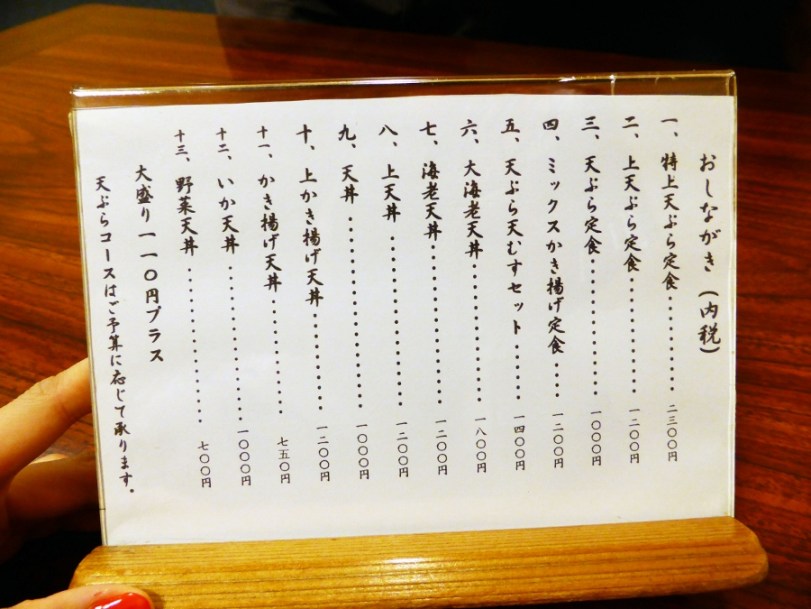 おしながき(内税)
一、特上天ぷら定食............二三〇〇円
二、上天ぷら定食............一二〇〇円
三、天ぷら定食............一〇〇〇円
四、ミックスかき揚げ定食....一二〇〇円
五、天ぷら天むすセット......一四〇〇円
六、大海老天丼............一八〇〇円
七、海老天丼............一二〇〇円
八、上天丼............一二〇〇円
九、天丼............一〇〇〇円
十、上かき揚げ天丼............一二〇〇円
十一、かき揚げ天丼............七五〇円
十二、いか天丼............一〇〇〇円
十三、野菜天丼............七〇〇円
大盛り一一〇円プラス
天ぷらコースはご予算に応じて承ります。